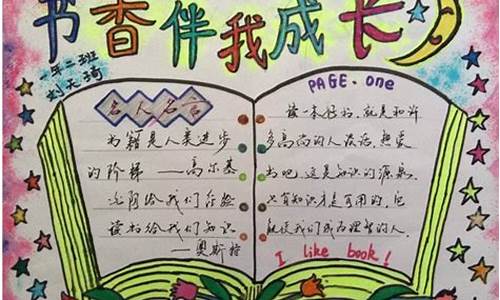 书香伴我成长
年二班
刘天琦
名人名言
书籍是人类进步
的阶梯 ——高尔基
光阴给我们经验
读书给我们知识
——奥斯特
PAGE. one
读一本好书,就是和许
多高尚的人谈话,热爱
书吧,这是知识的源泉。
只有知识才是有用的,它
能使我们成为理智的人.
I like book!